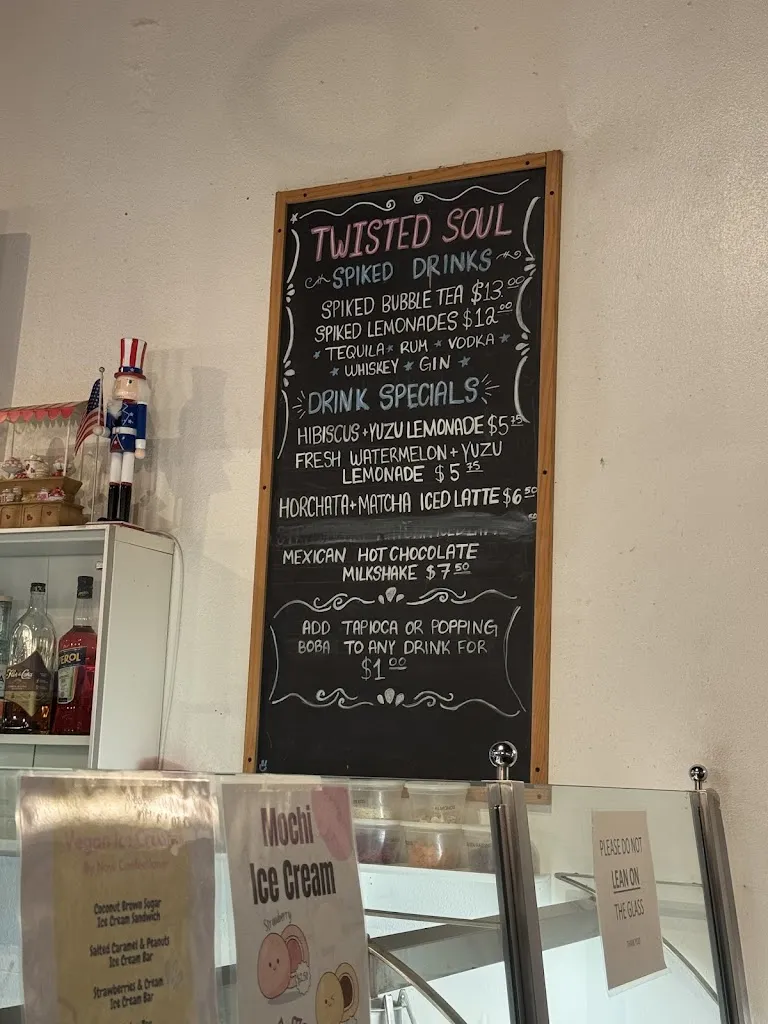 TWISTED SOUL
SPIKED DRINKS
SPIKED BUBBLE TEA $13.00
SPIKED LEMONADES $12.00
TEQUILA * RUM * VODKA
WHISKEY * GIN
DRINK SPECIALS
HIBISCUS + YUZU LEMONADE $5.75
FRESH WATERMELON + YUZU
LEMONADE $5.75
HORCHATA + MATCHA ICED LATTE $6.50
MEXICAN HOT CHOCOLATE
MILKSHAKE $7.50
ADD TAPIOCA OR POPPING
BOBA TO ANY DRINK FOR
$1.00
EROL
Vegan Ice Cream
Coconut Brown Sugar
Ice Cream Sandwich
Salted Caramel & Peanuts
Ice Cream Bar
Strawberries & Cream
Ice Cream Bar
Mochi
Ice Cream
Strawberry
PLEASE DO NOT
LEAN ON
THE GLASS